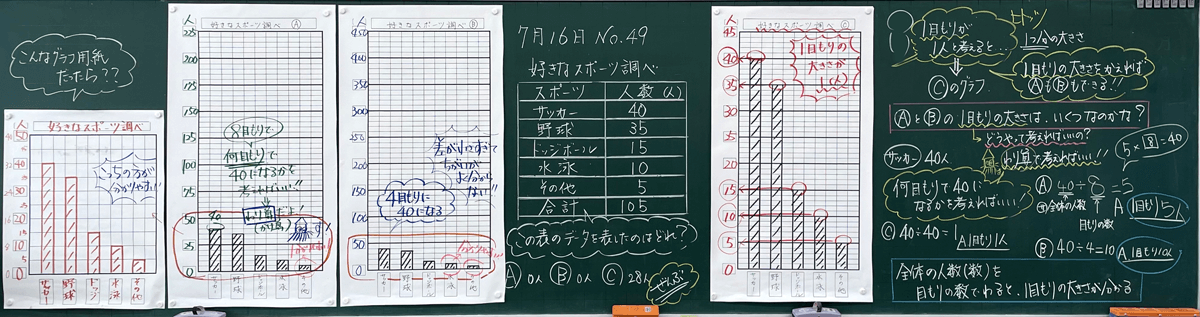 こんなグラフ用紙
だったら??
人
好きなスポーツ調べ
50
40
30
20
10
0
こっちの方が
分かりやすい!!
サッカー
野球
ドッジ
水泳
その他
人
好きなスポーツ調べ Ⓐ
225
200
175
150
125
100
75
50
25
0
8目もりで
何目もりで
40になるかを
考えればいい!!
わり算だよ!
40
サッカー
野球
水泳
その他
人
好きなスポーツ調べ Ⓑ
450
400
350
300
250
200
150
100
50
0
差が小さすぎて
ちがいが
よく分から
ない!!
4目もりに
40になる
サッカー
野球
水泳
その他
7月16日 No.49
好きなスポーツ調べ
スポーツ 人数(人)
サッカー 40
野球 35
ドッジボール 15
水泳 10
その他 5
合計 105
この表のデータを表したのはどれ?
Ⓐ0人 Ⓑ0人 Ⓒ28人
ぜんぶ
人
好きなスポーツ調べ Ⓒ
45
40
35
30
25
20
15
10
5
0
1目もりの
大きさが
1(人)
サッカー
野球
水泳
その他
1目もりが
1人と考えると…
Ⓒのグラフ
1つ分の大きさ
1目もりの大きさをかえれば
ⒶもⒷもできる!!
ⒶとⒷの1目もりの大きさは、いくつなのかな?
どうやって考えればいいの?
わり算で考えればいい!!
5×8=40
サッカー 40人
何目もりで40に
なるかを考えればいい!
Ⓐ 40÷8=5
全体の人数
目もりの数
A 1目もり5人
Ⓒ 40÷40=1
A 1目もり1人
Ⓑ 40÷4=10
A 1目もり10人
全体の人数(数)を
目もりの数でわると、1目もりの大きさが分かる